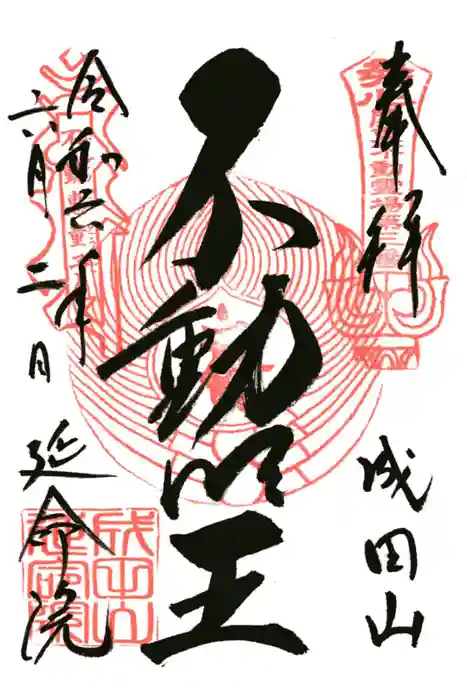 奉拝
成田山
不動明王
令和六年
六月二日
延命院
成田山
延命院